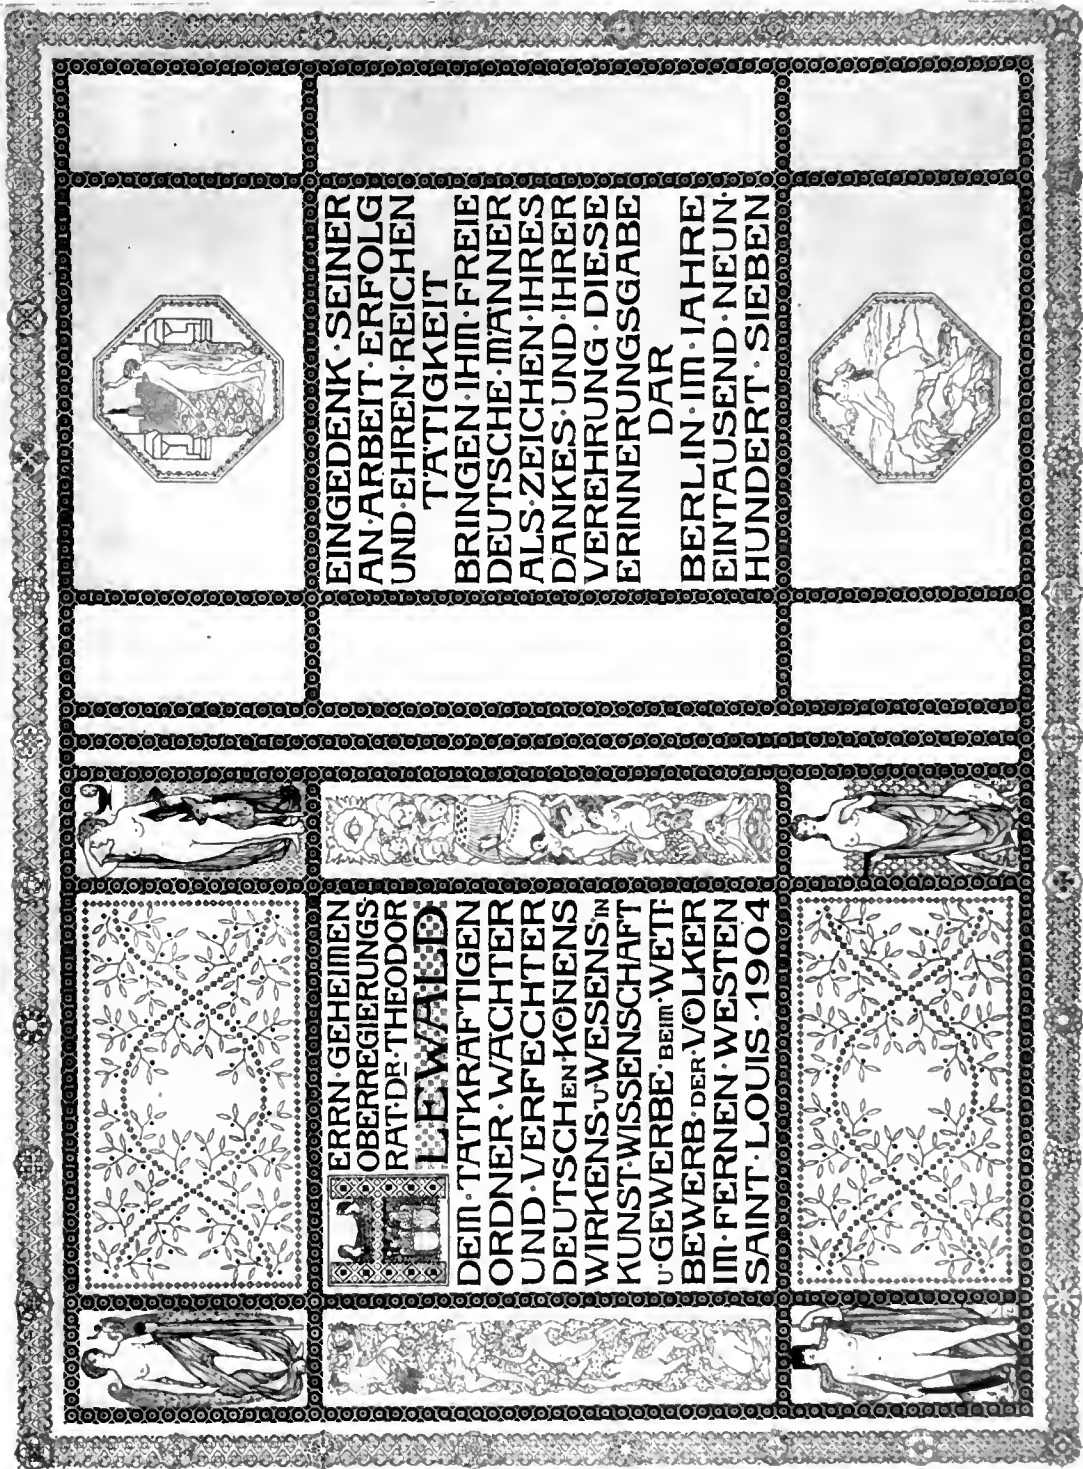 HERRN·GEHEIMEN
OBERREGIERUNGS·
RAT·DR·THEODOR
LEWALD
DEM·TATKRÄFTIGEN
ORDNER·WÄCHTER
UND·VERFECHTER
DEUTSCHEN·KÖNENS
WIRKENS·U·WESENS·IN
KUNST·WISSENSCHAFT
U·GEWERBE·BEIM·WETT·
BEWERB·DER·VÖLKER
IM·FERNEN·WESTEN
SAINT·LOUIS·1904
EINGEDENK·SEINER
AN·ARBEIT·ERFOLG
UND·EHREN·REICHEN
TÄTIGKEIT
BRINGEN·IHM·FREIE
DEUTSCHE·MÄNNER
ALS·ZEICHEN·IHRES
DANKES·UND·IHRER
VEREHRUNG·DIESE
ERINNERUNGSGABE
DAR
BERLIN·IM·IAHRE
EINTAUSEND·NEUN·
HUNDERT·SIEBEN